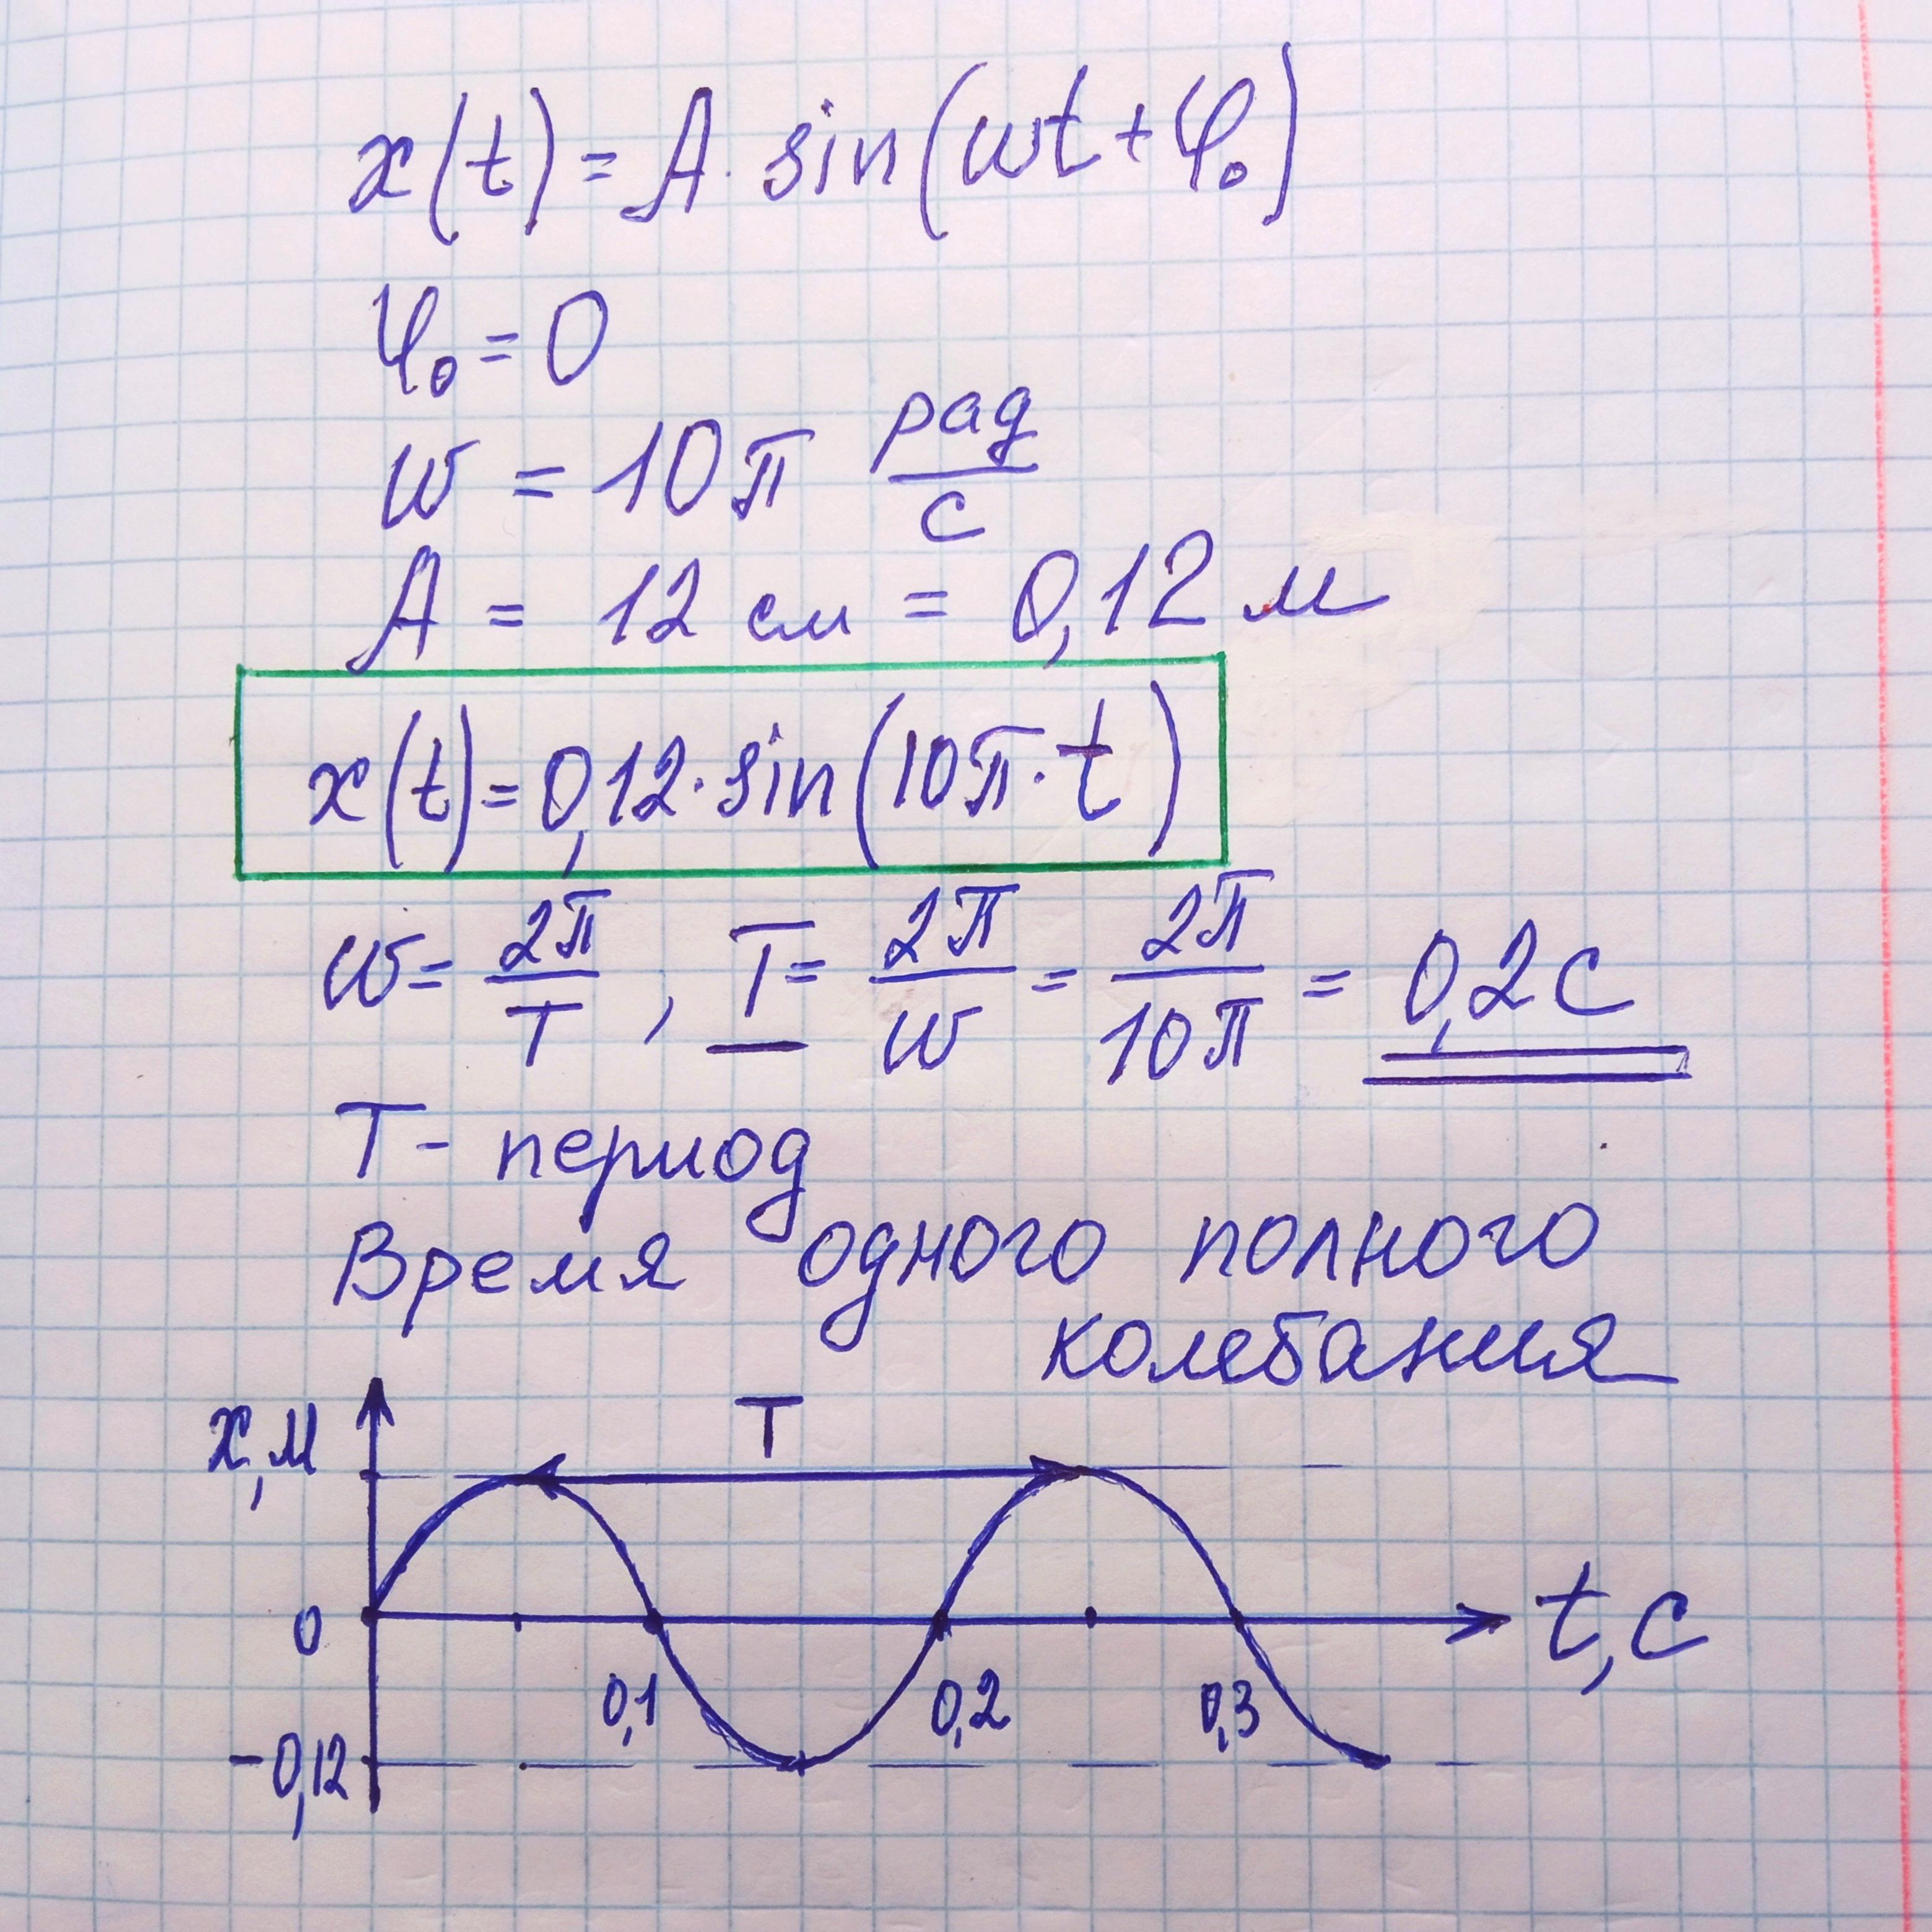 x(t) = A · sin(ωt + φ₀)
φ₀ = 0
ω = 10π рад/с
A = 12 см = 0,12 м
x(t) = 0,12 · sin(10π · t)
ω = 2π/T , T = 2π/ω = 2π/10π = 0,2 с
T - период
Время одного полного
колебания
x, м
T
0
t, с
0,1 0,2 0,3
-0,12